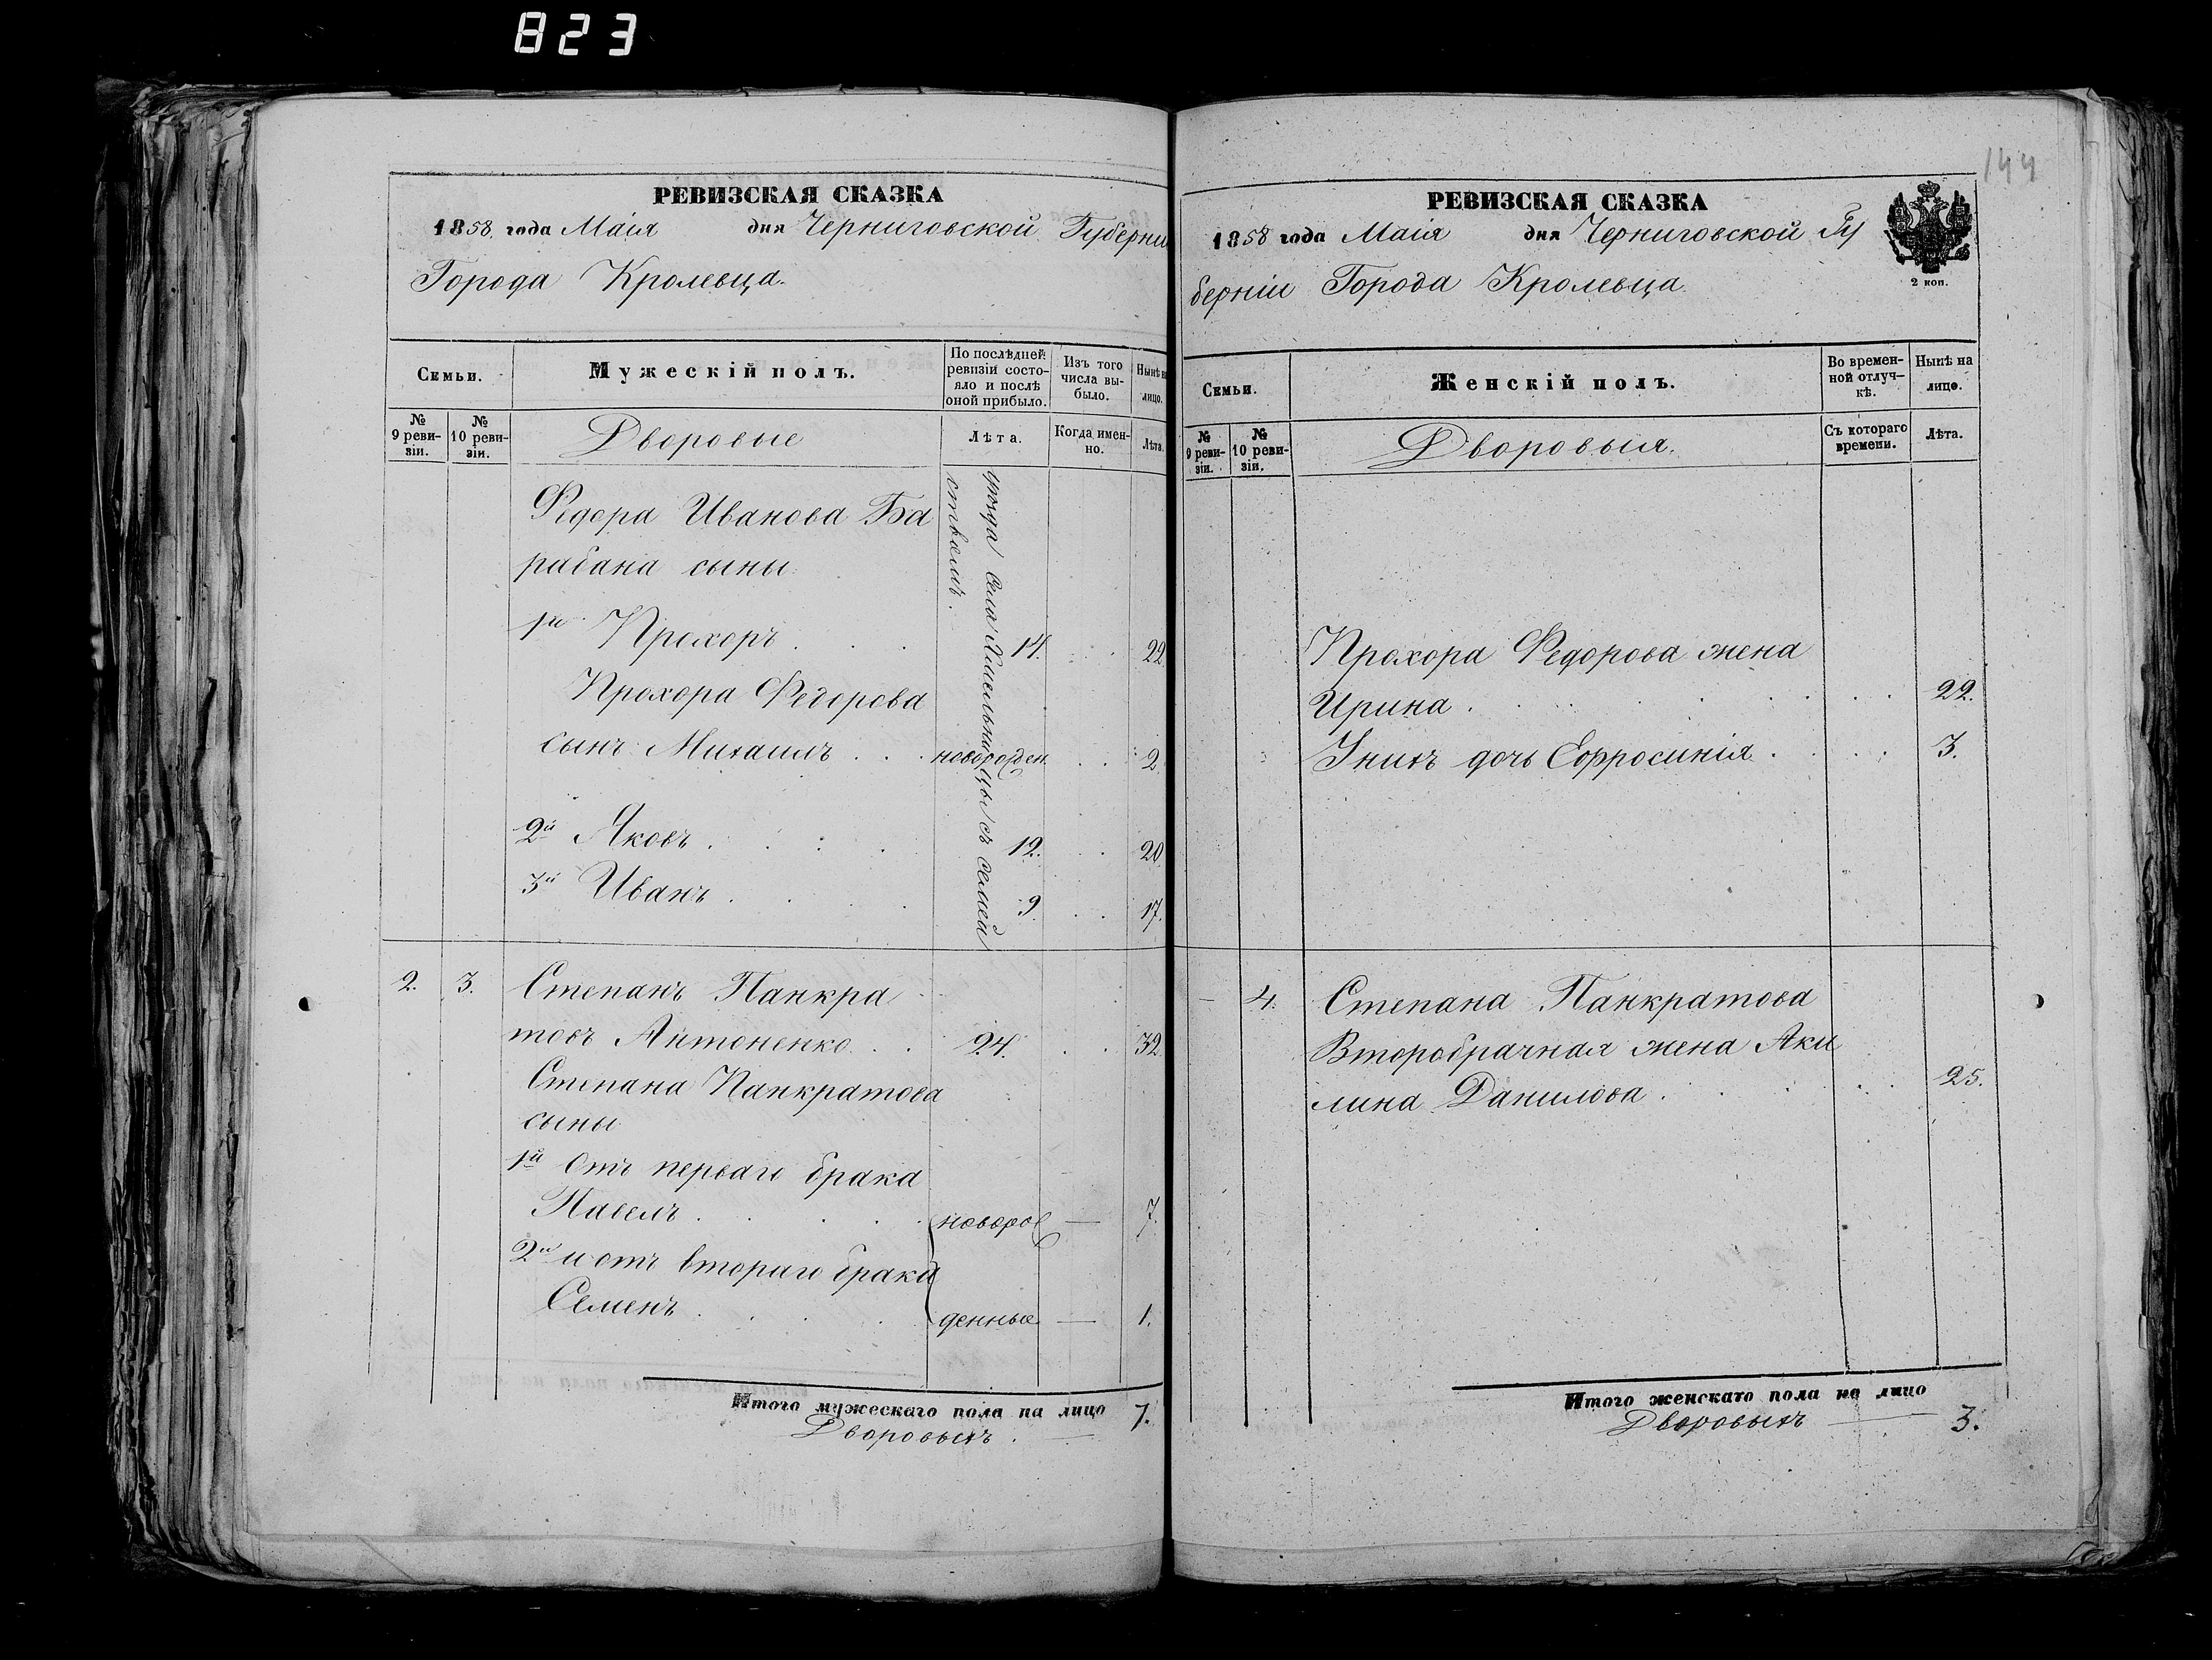 823
144
РЕВИЗСКАЯ СКАЗКА
1858 года Маія дня Черниговской Губерни
Города Кролевца.
Семьи.
Мужескій полъ.
По послѣдней ревизіи состояло и послѣ оной прибыло.
Изъ того числа выбыло.
Нынѣ на лицо.
№ 9 ревизіи.
№ 10 ревизіи.
Дворовые
Лѣта.
Когда именно.
Лѣта.
Федора Иванова Ба
рабана сыны
уѣзда села Хмельницы съ семей
ствомъ.
1й Прохоръ . . . 14. . . 22
Прохора Федорова
сынъ Михаилъ . . . новорожден . . 2
2й Яковъ . . . . 12. . . 20
3й Иванъ . . . . 9 . . 17.
2. 3. Степанъ Панкра
товъ Антоненко . . 24. . . 32
Степана Панкратова
сыны
1й Отъ перваго брака
Павелъ . . . . . новоро — 7.
2й и отъ втораго брака
Семенъ . . . . денные — 1.
Итого мужескаго пола на лицо 7.
Дворовыхъ . —
РЕВИЗСКАЯ СКАЗКА
1858 года Маія дня Черниговской Гу
берніи Города Кролевца.
2 коп.
Семьи.
Женскій полъ.
Во временной отлучкѣ.
Нынѣ на лицо.
№ 9 ревизіи.
№ 10 ревизіи.
Дворовыя.
Съ котораго времени.
Лѣта.
Прохора Федорова жена
Ирина . . . . . . . 22.
Ихъ дочь Ефросинія . . . . 3.
— 4. Степана Панкратова
Второбрачная жена Аки
лина Данилова . . . . . 25.
Итого женскаго пола на лицо
Дворовыхъ — 3.